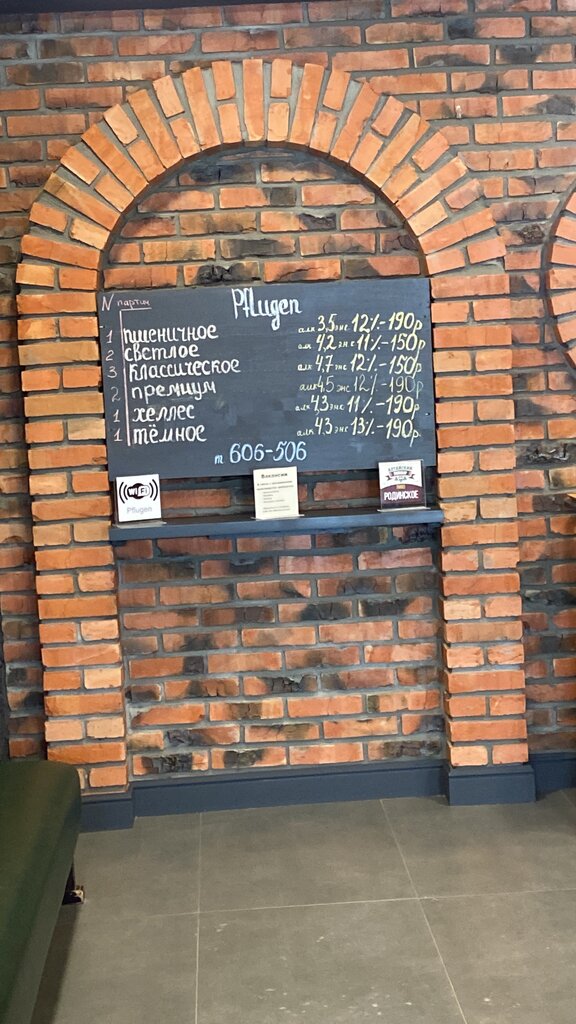 Pflugen
N партии
1 пшеничное алк 3,5 экс 12%-190р
2 светлое алк 4,2 экс 11%-150р
3 классическое алк 4,7 экс 12%-150р
2 премиум алк 4,5 экс 12%-190р
1 хеллес алк 4,3 экс 11%-190р
1 тёмное алк 4,3 экс 13%-190р
т 606-506
WiFi
Pflugen
Вакансия
АЛТАЙСКИЙ
ПИВО
РОДИНСКОЕ